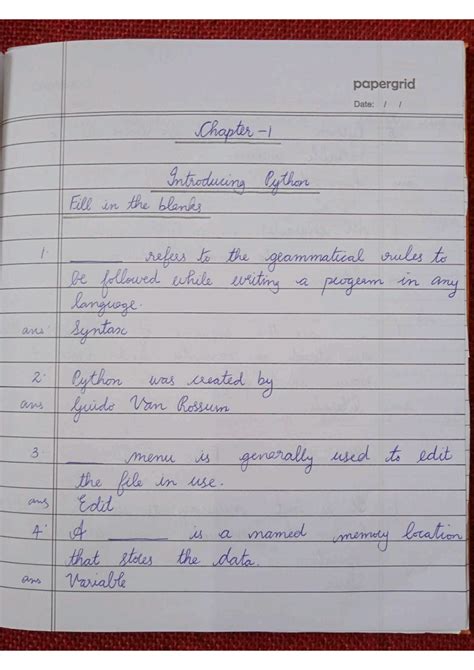 papergrid
Date: / /
Chapter -1
Introducing Python
Fill in the blanks
1. ______ refers to the geammatical rules to
be followed while writing a progerm in any
language.
ans Syntax
2. Python was created by
ans Guido Van Rossum
3 ______ menu is generally used to edit
the file in use.
ans Edit
4. A ______ is a named memory location
that stoes the data.
ans Variable